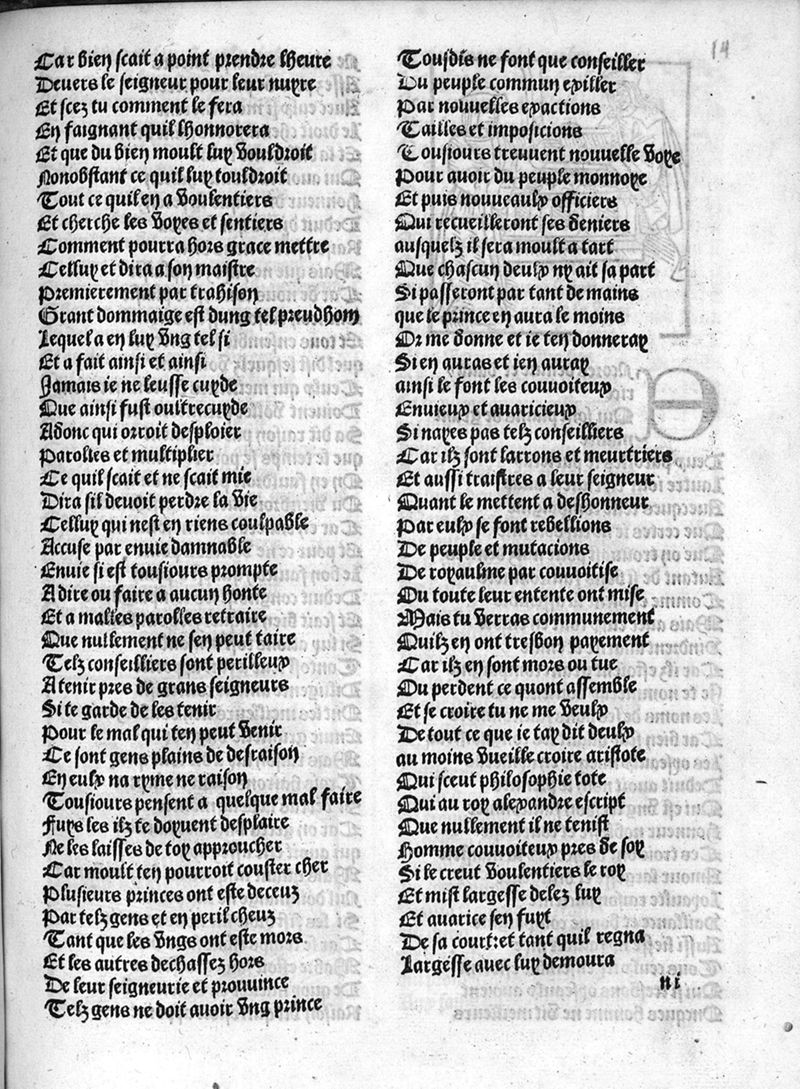 14
Car bien scait a point prendre lheure
Deuers le seigneur pour leur nuyre
Et scez tu comment le fera
En faignant quil lhonnorera
Et que du bien moult luy vouldroit
Nonobstant ce quil luy touldroit
Tout ce quil en a voulentiers
Et cherche les voyes et sentiers
Comment pourra hors grace mettre
Celluy et dira a son maistre
Premierement par trahison
Grant dommaige est dung tel preudhom
Lequel a en luy vng tel si
Et a fait ainsi et ainsi
Jamais ie ne leusse cuyde
Que ainsi fust oultrecuyde
Adonc qui orroit desploier
Parolles et multiplier
Ce quil scait et ne scait mie
Dira sil deuoit perdre la vie
Celluy qui nest en riens coulpable
Accuse par enuie damnable
Enuie si est tousiours prompte
A dire ou faire a aucun honte
Et a malles parolles retraire
Que nullement ne sen peut taire
Telz conseilliers sont perilleux
A tenir pres de grans seigneurs
Si te garde de les tenir
Pour le mal qui ten peut venir
Ce sont gens plains de desraison
En eulx na ryme ne raison
Tousiours pensent a quelque mal faire
Fuys les ilz te doyuent desplaire
Ne les laisses de toy approucher
Car moult ten pourroit couster cher
Plusieurs princes ont este deceuz
Par telz gens et en peril cheuz
Tant que les vngs ont este mors
Et les autres dechassez hors
De leur seigneurie et prouuince
Telz gens ne doit auoir vng prince
Tousdis ne font que conseiller
Du peuple commun exiller
Par nouuelles exactions
Tailles et imposicions
Tousiours treuuent nouuelle voye
Pour auoir du peuple monnoye
Et puis nouueaulx officiers
Qui recueilleront ses deniers
ausquelz il sera moult a tart
Que chascun deulx ny ait sa part
Si passeront par tant de mains
que le prince en aura le moins
Or me donne et ie ten donneray
Si en auras et ien auray
ainsi le font les couuoiteux
Enuieux et auaricieux
Si nayes pas telz conseilliers
Car ilz sont larrons et meurtriers
Et aussi traistres a leur seigneur
Quant le mettent a deshonneur
Par eulx se font rebellions
De peuple et mutacions
De royaulme par couuoitise
Ou toute leur entente ont mise
Mais tu verras communement
Quilz en ont tresbon payement
Car ilz en sont mors ou tue
Ou perdent ce quont assemble
Et se croire tu ne me veulx
De tout ce que ie tay dit deulx
au moins vueille croire aristote
Qui sceut philosophie tote
Qui au roy alexandre escript
Que nullement il ne tenist
Homme couuoiteux pres de soy
Si le creut voulentiers le roy
Et mist largesse delez luy
Et auarice sen fuyt
De sa court:et tant quil regna
Largesse auec luy demoura
ni